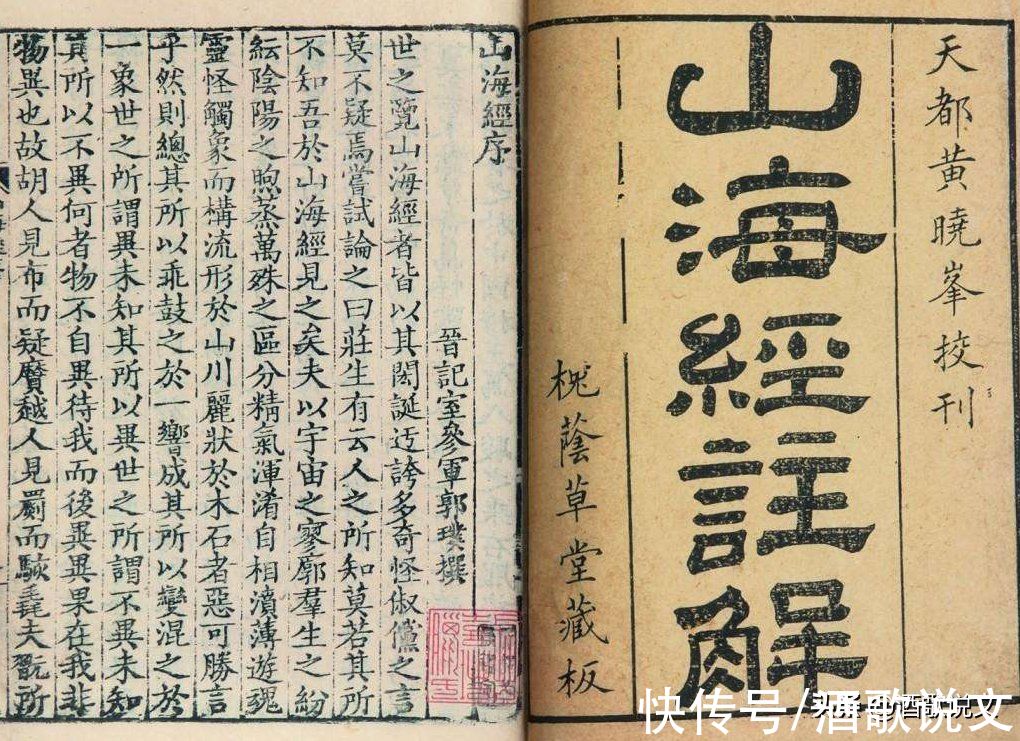 天都黄曉峯挍刊
山海經註解
槐蔭草堂藏板
山海經序
晉記室參軍郭璞撰
世之覽山海經者皆以其閎誕迃誇多奇怪俶儻之言
莫不疑焉嘗試論之曰莊生有云人之所知莫若其所
不知吾於山海經見之矣夫以宇宙之寥廓羣生之紛
紜陰陽之煦蒸萬殊之區分精氣渾淆自相濆薄遊魂
靈怪觸象而構流形於山川麗狀於木石者惡可勝言
乎然則總其所以乖鼓之於一響成其所以變混之於
一象世之所謂異未知其所以異世之所謂不異未知
其所以不異何者物不自異待我而後異異果在我非
物異也故胡人見布而疑黂越人見罽而駭毳夫翫所
快传号/酒歌说文